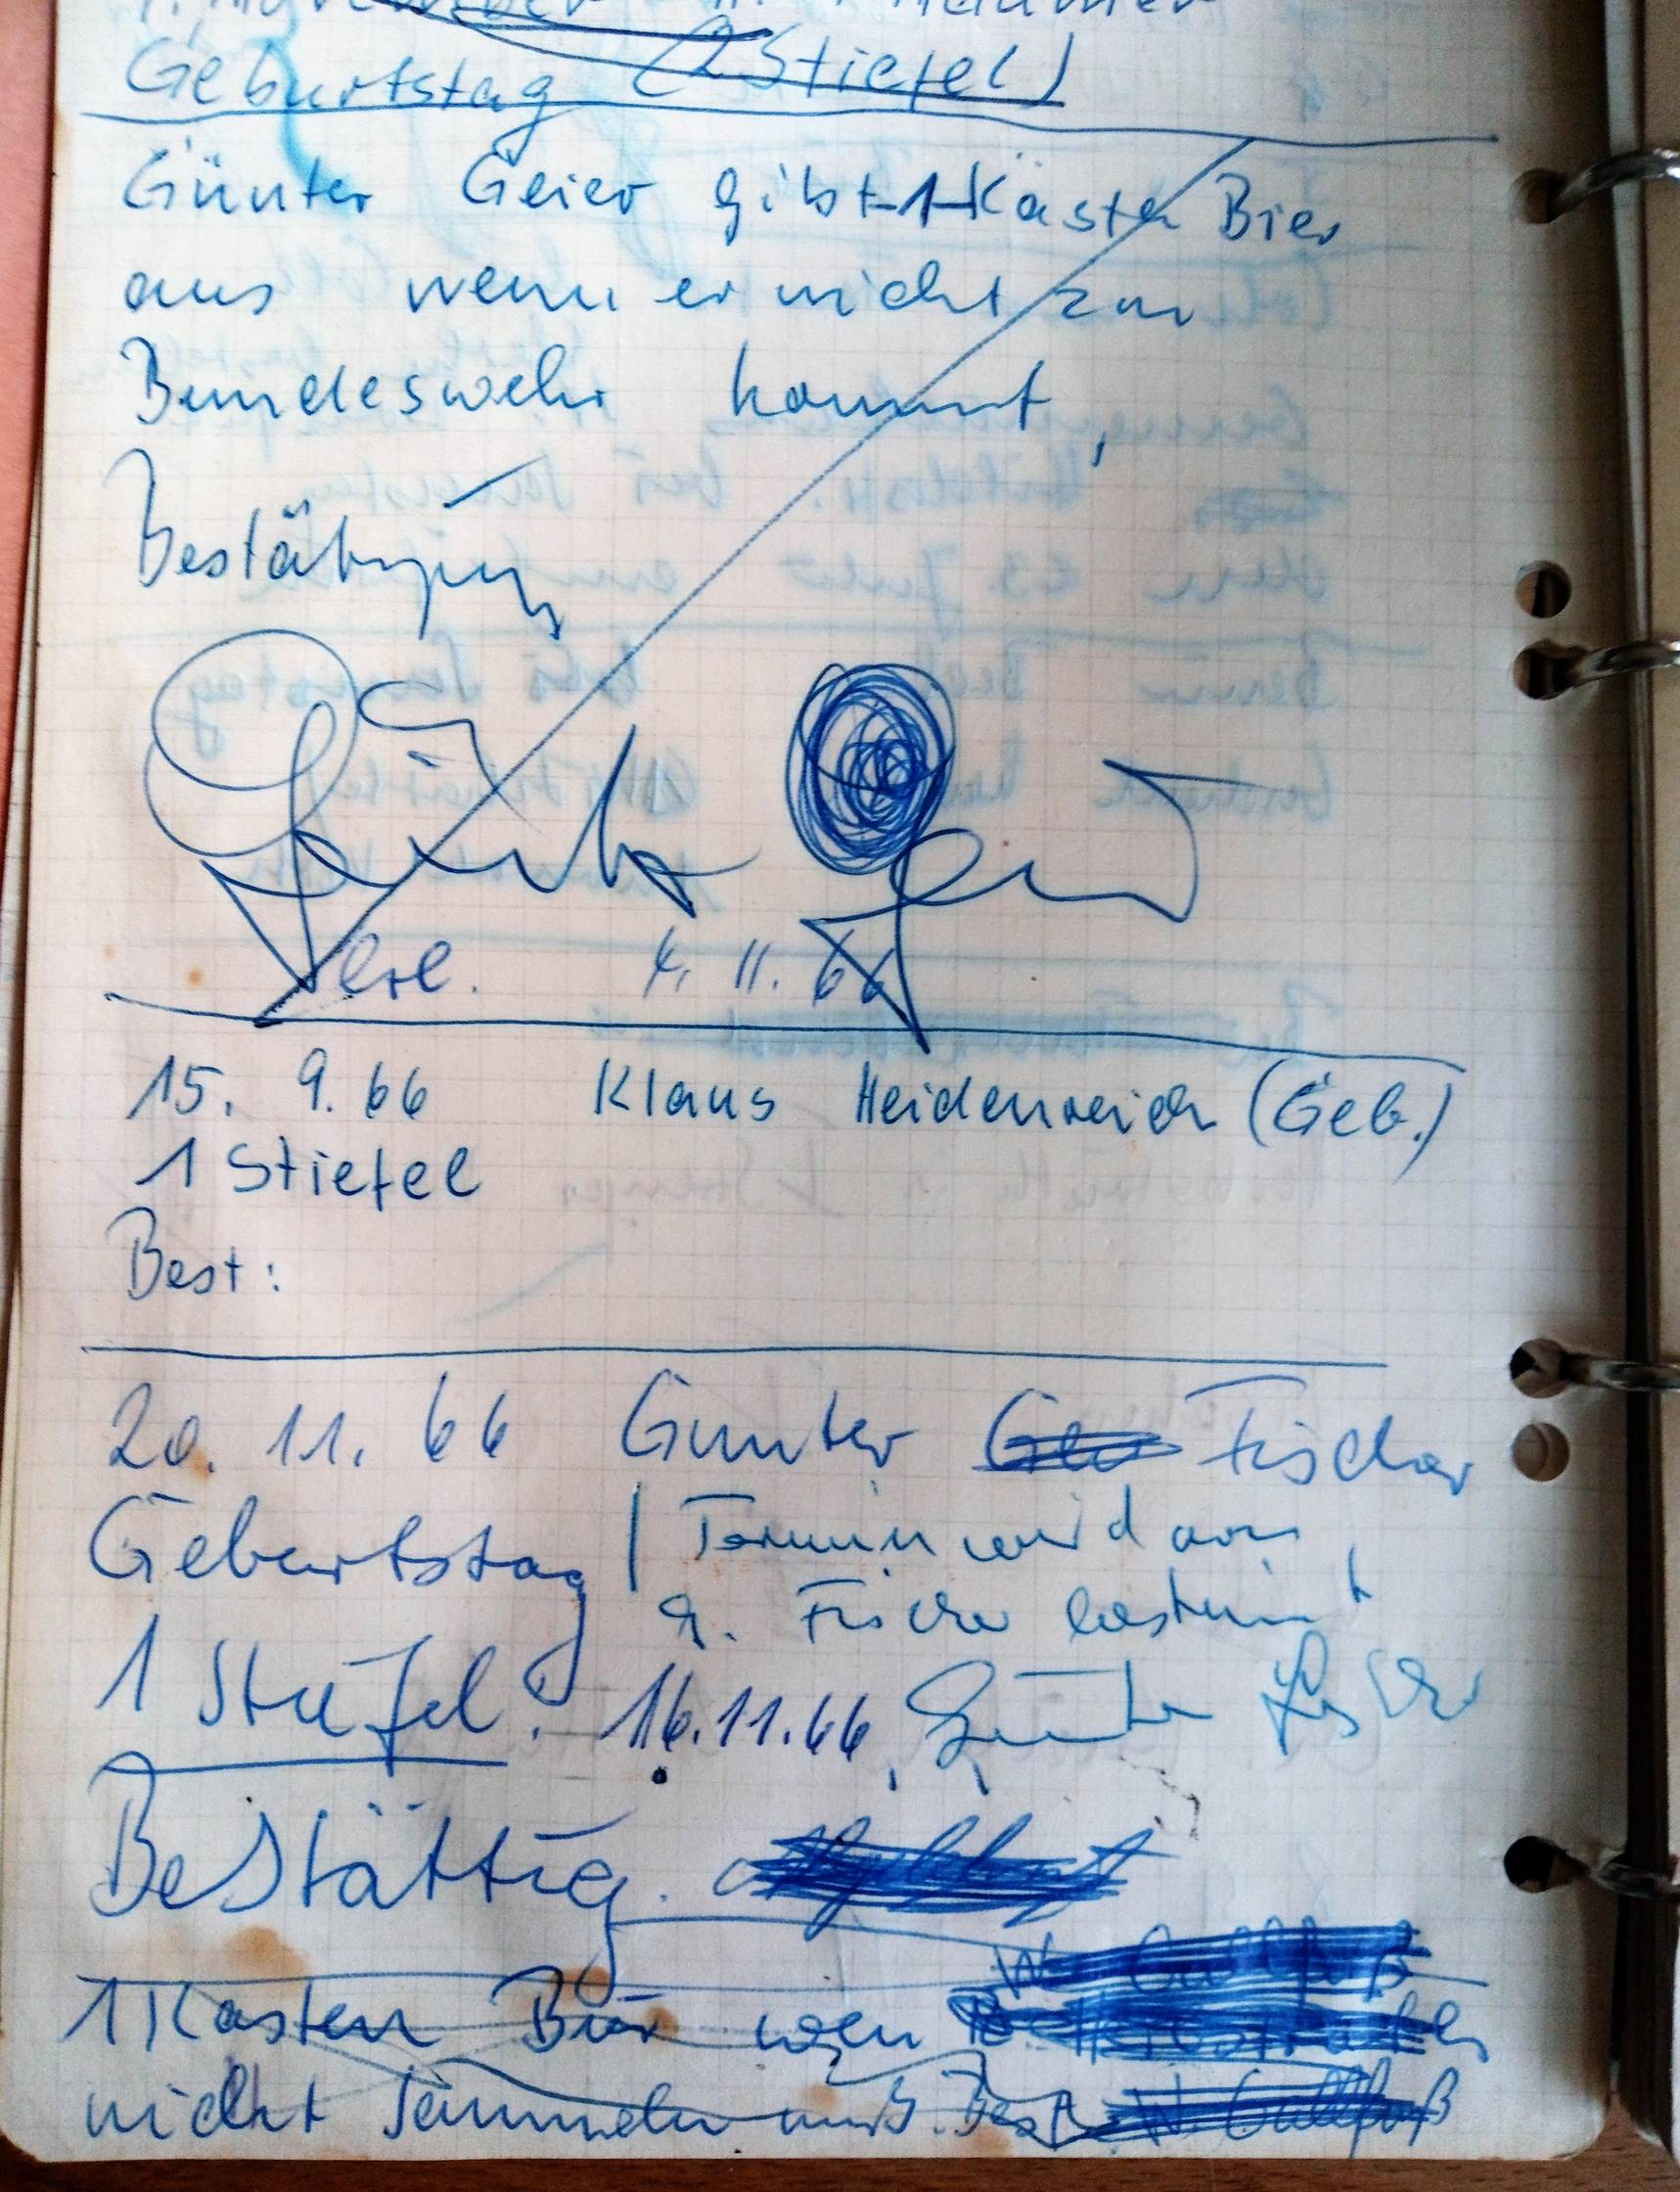 Geburtstag (2 Stiefel)
Günter Geier gibt 1 Kästen Bier
aus wenn er nicht zur
Bundeswehr kommt,
Bestätigung
Günter Geier
erl. 4. 11. 66
15. 9. 66 Klaus Heidenreich (Geb.)
1 Stiefel
Best:
20. 11. 66 Gunter Fischer
Geburtstag / Termin wird von
g. Fischer bestimmt
1 Stiefel: 16.11.66, Günter Fischer
Bestättig.
1 Kasten Bier wen
nicht sammeln muß. Best.